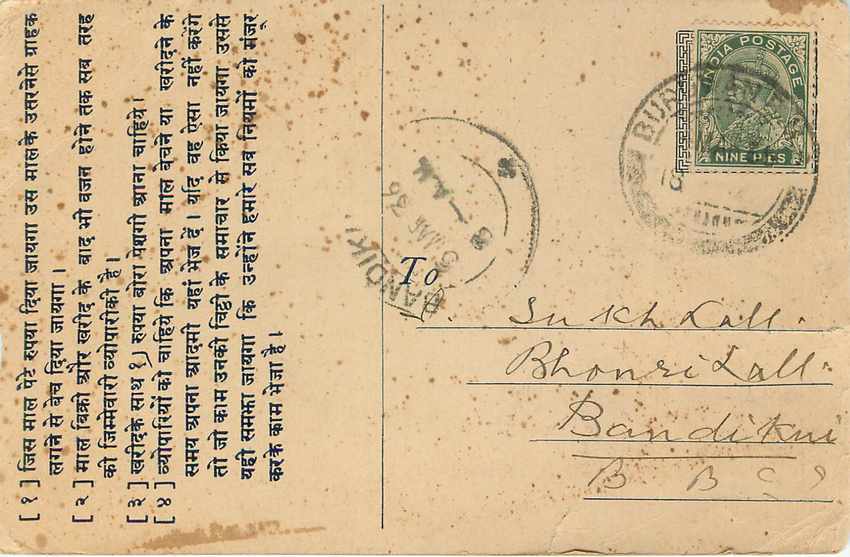 [ १ ] जिस माल पेटे रुपया दिया जायगा उस मालके उतरनेसे ग्राहक
लगाने से बेच दिया जायगा ।
[ २ ] माल बिक्री और खरीद के बाद भी वजन होने तक सब तरह
की जिम्मेवारी व्यापारीकी है ।
[ ३ ] खरीदके साथ १) रुपया बोरा पेशगी आना चाहिये ।
[ ४ ] व्योपारियों को चाहिये कि अपना माल बेचने या खरीदने के
समय अपना आदमी यहां भेज दें । यदि वह ऐसा नहीं करेंगे
तो जो काम उनकी चिट्ठी के समाचार से किया जायगा उससे
यही समझा जायगा कि उन्होंने हमारे सब नियमों को मंजूर
करके काम भेजा है ।
INDIA POSTAGE
NINE PIES
BANDIKUI
MAR 36
A.M.
To
Sukh Lall
Bhonri Lall
Bandikui
B B C I